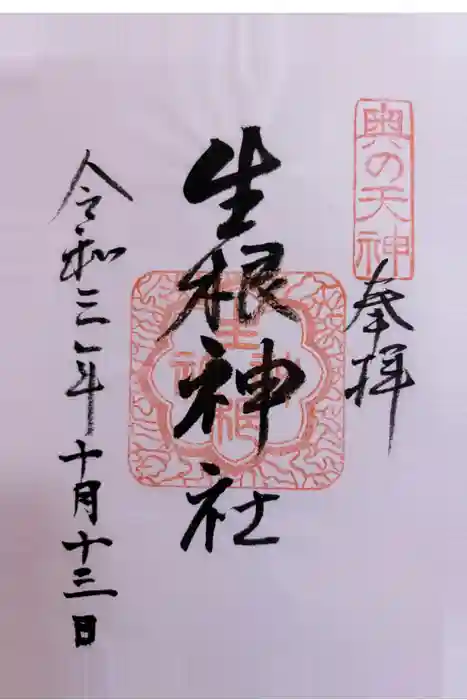 奥の天神
奉拝
生根神社
令和三年十月十三日